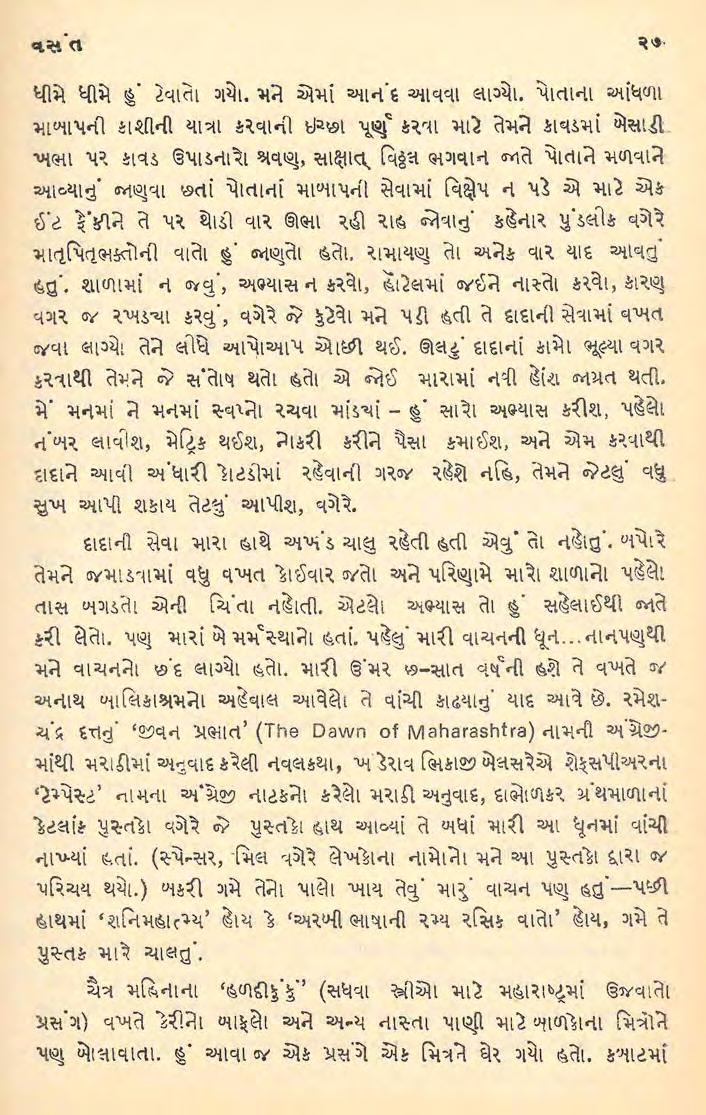 વસંત ૨૭
ધીમે ધીમે હું ટેવાતો ગયો. મને એમાં આનંદ આવવા લાગ્યો. પોતાના આંધળા
માબાપની કાશીની યાત્રા કરવાની ઇચ્છા પૂર્ણ કરવા માટે તેમને કાવડમાં બેસાડી
ખભા પર કાવડ ઉપાડનારો શ્રવણ, સાક્ષાત્ વિઠ્ઠલ ભગવાન જાતે પોતાને મળવાને
આવ્યાનું જાણવા છતાં પોતાનાં માબાપની સેવામાં વિક્ષેપ ન પડે એ માટે એક
ઈંટ ફેંકીને તે પર થોડી વાર ઊભા રહી રાહ જોવાનું કહેનાર પુંડલીક વગેરે
માતૃપિતૃભક્તોની વાતો હું જાણતો હતો. રામાયણ તો અનેક વાર યાદ આવતું
હતું. શાળામાં ન જવું, અભ્યાસ ન કરવો, હૉટેલમાં જઈને નાસ્તો કરવો, કારણ
વગર જ રખડ્યા કરવું, વગેરે જે કુટેવો મને પડી હતી તે દાદાની સેવામાં વખત
જવા લાગ્યો તેને લીધે આપોઆપ ઓછી થઈ. ઊલટું દાદાનાં કામો ભૂલ્યા વગર
કરવાથી તેમને જે સંતોષ થતો હતો એ જોઈ મારામાં નવી હોંશ જાગ્રત થતી.
મેં મનમાં ને મનમાં સ્વપ્નો રચવા માંડ્યાં – હું સારો અભ્યાસ કરીશ, પહેલો
નંબર લાવીશ, મેટ્રિક થઈશ, નોકરી કરીને પૈસા કમાઈશ, અને એમ કરવાથી
દાદાને આવી અંધારી કોટડીમાં રહેવાની ગરજ રહેશે નહિ, તેમને જેટલું વધુ
સુખ આપી શકાય તેટલું આપીશ, વગેરે.
દાદાની સેવા મારા હાથે અખંડ ચાલુ રહેતી હતી એવું તો નહોતું. બપોરે
તેમને જમાડવામાં વધુ વખત કોઈવાર જતો અને પરિણામે મારો શાળાનો પહેલો
તાસ બગડતો એની ચિંતા નહોતી. એટલો અભ્યાસ તો હું સહેલાઈથી જાતે
કરી લેતો. પણ મારાં બે મર્મસ્થાનો હતાં. પહેલું મારી વાચનની ધૂન...નાનપણથી
મને વાચનનો છંદ લાગ્યો હતો. મારી ઉંમર છ-સાત વર્ષની હશે તે વખતે જ
અનાથ બાલિકાશ્રમનો અહેવાલ આવેલો તે વાંચી કાઢયાનું યાદ આવે છે. રમેશ-
ચંદ્ર દત્તનું ‘જીવન પ્રભાત’ (The Dawn of Maharashtra) નામની અંગ્રેજી-
માંથી મરાઠીમાં અનુવાદ કરેલી નવલકથા, ખંડેરાવ ભિકાજી બેલસરેએ શેક્સપીઅરના
‘ટેમ્પેસ્ટ’ નામના અંગ્રેજી નાટકનો કરેલો મરાઠી અનુવાદ, દાભોળકર ગ્રંથમાળાનાં
કેટલાંક પુસ્તકો વગેરે જે પુસ્તકો હાથ આવ્યાં તે બધાં મારી આ ધૂનમાં વાંચી
નાખ્યાં હતાં. (સ્પેન્સર, મિલ વગેરે લેખકોના નામોનો મને આ પુસ્તકો દ્વારા જ
પરિચય થયો.) બકરી ગમે તેનો પાલો ખાય તેવું મારું વાચન પણ હતું—પછી
હાથમાં ‘શનિમહાત્મ્ય’ હોય કે ‘અરબી ભાષાની રમ્ય રસિક વાતો’ હોય, ગમે તે
પુસ્તક મારે ચાલતું.
ચૈત્ર મહિનાના ‘હળદીકુંકું’ (સધવા સ્ત્રીઓ માટે મહારાષ્ટ્રમાં ઉજવાતો
પ્રસંગ) વખતે કેરીનો બાફલો અને અન્ય નાસ્તા પાણી માટે બાળકોના મિત્રોને
પણ બોલાવાતા. હું આવા જ એક પ્રસંગે એક મિત્રને ઘેર ગયો હતો. કબાટમાં